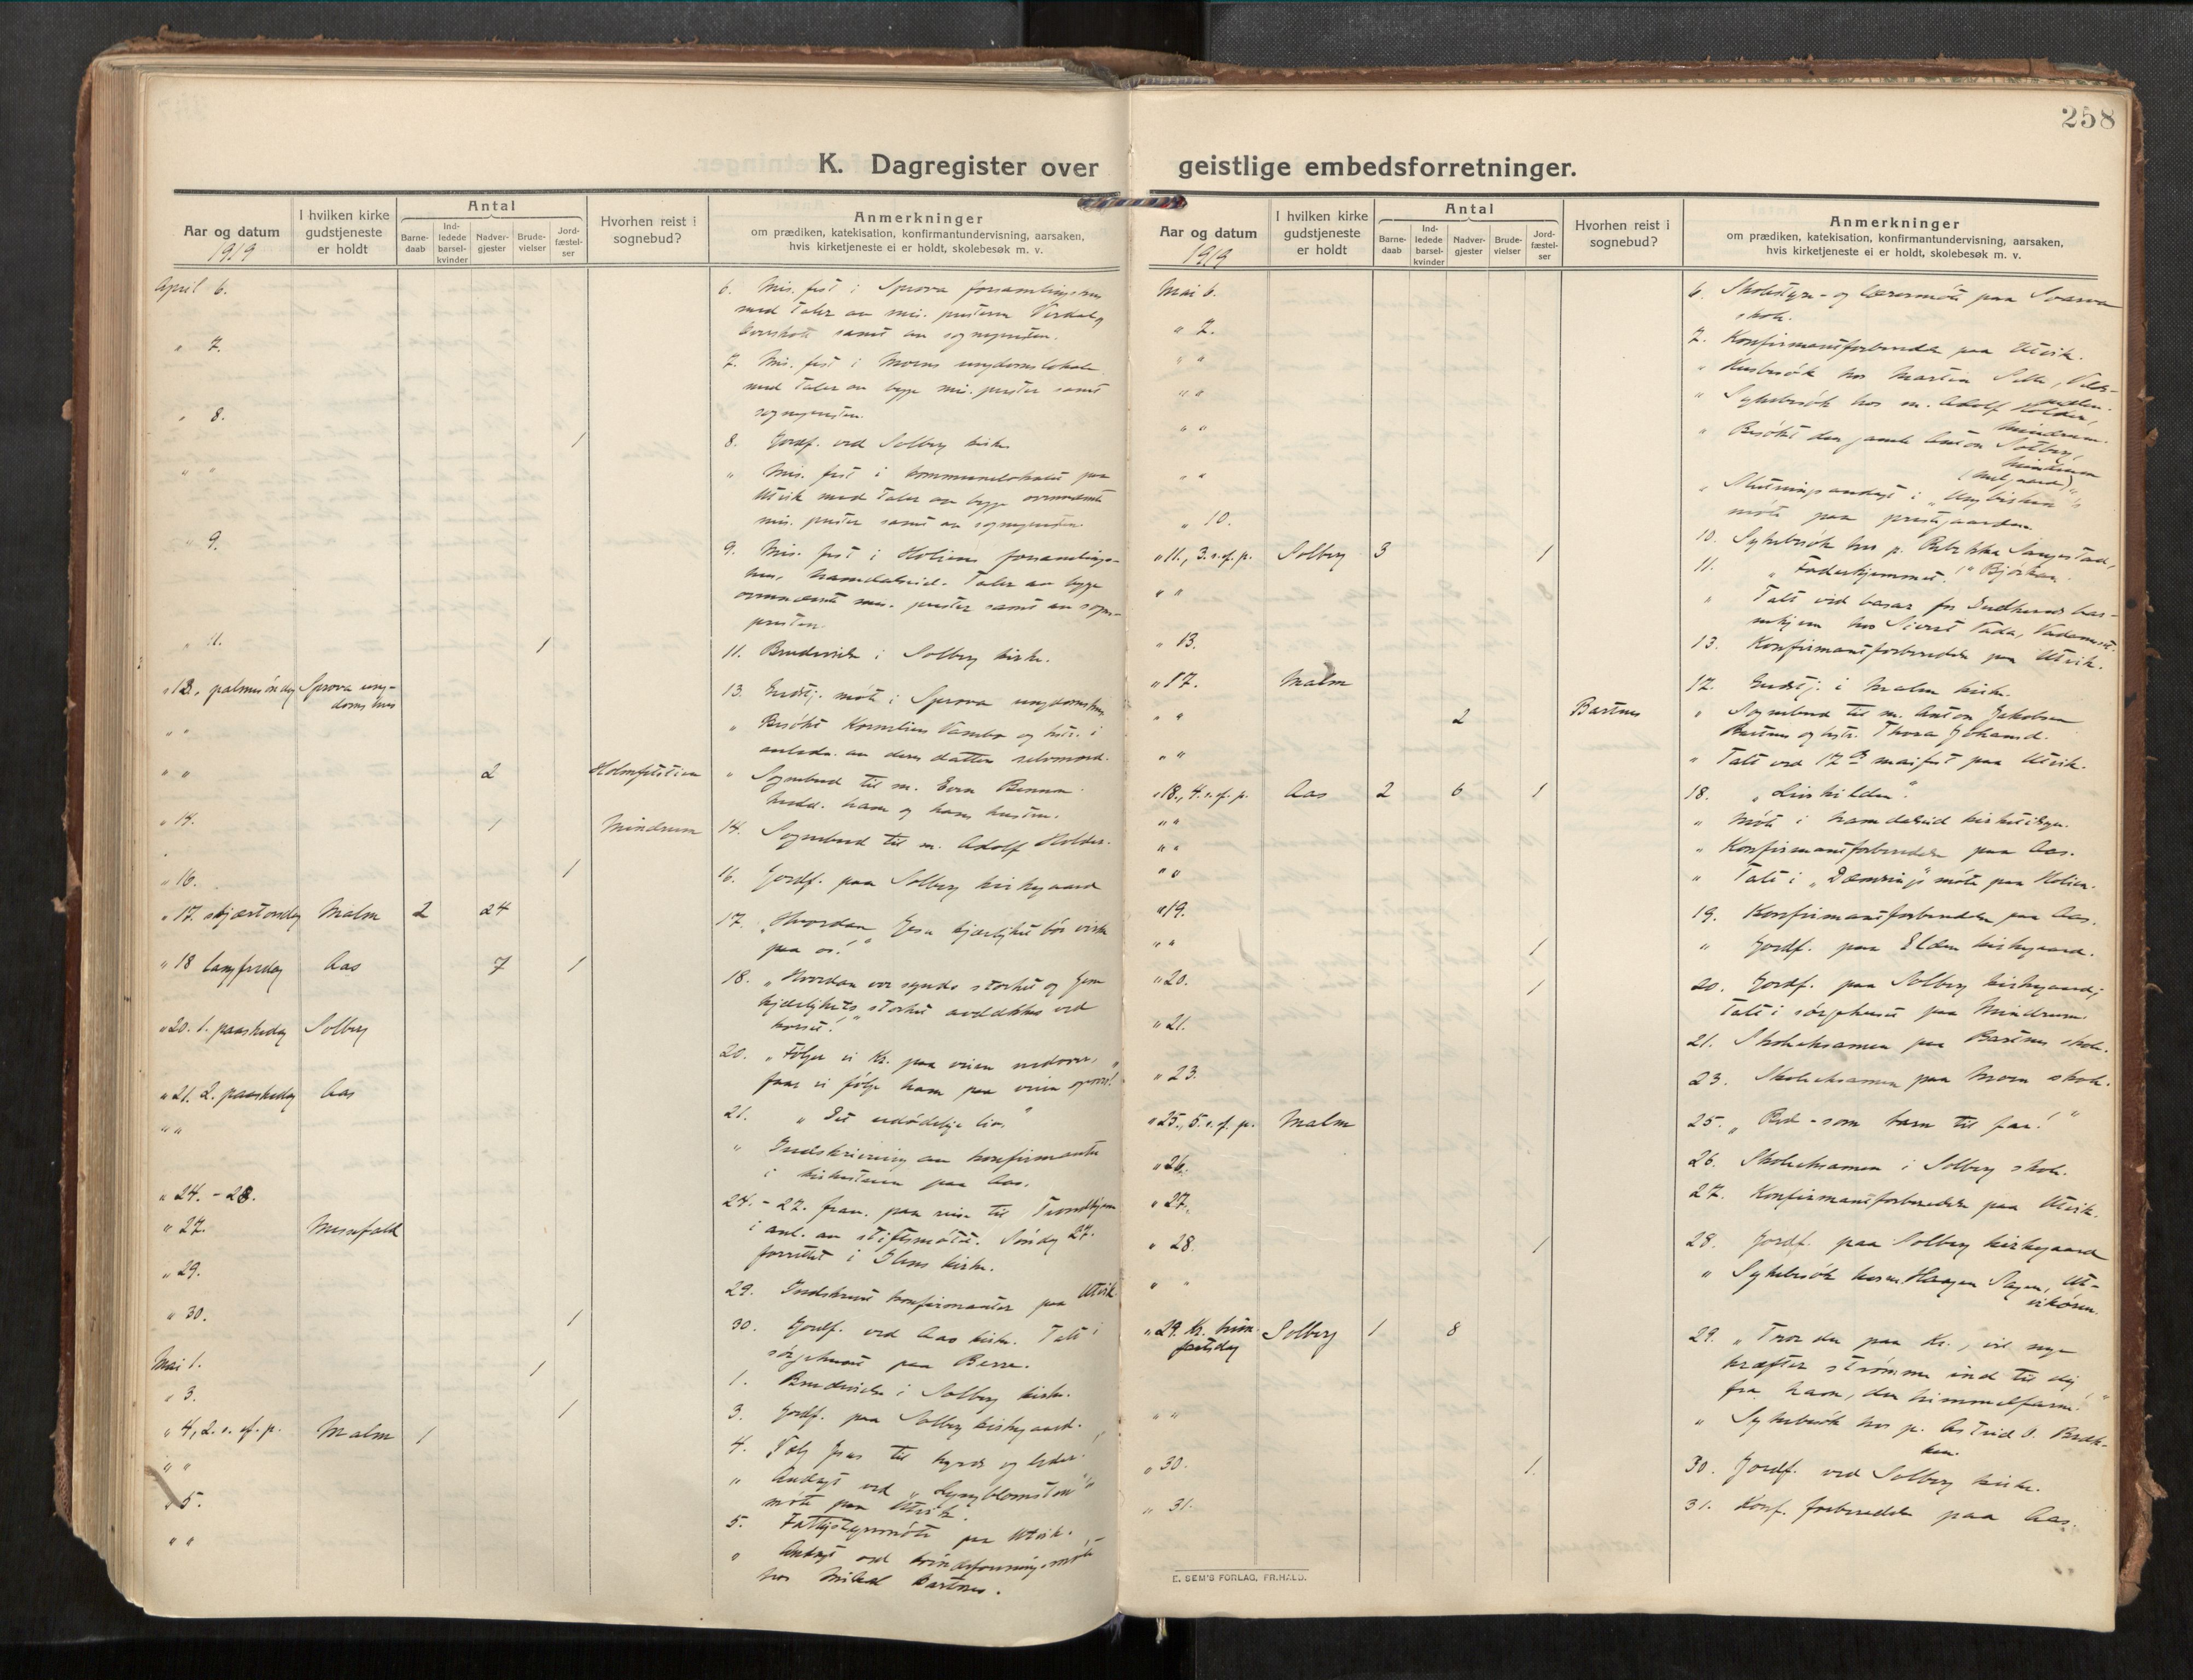 258
K. Dagregister over geistlige embedsforretninger.
Aar og datum
1919
I hvilken kirke gudstjeneste er holdt
Antal
Barne-daab
Ind-ledede barsel-kvinder
Nadver-gjester
Brude-vielser
Jord-fæstel-ser
Hvorhen reist i sognebud?
Anmerkninger
om prædiken, katekisation, konfirmantundervisning, aarsaken,
hvis kirketjeneste ei er holdt, skolebesøk m. v.
April 6.
6. Mis. fest i Sprova forsamlingshus
med taler av mis. presterne Virdal og
samt av sognepresten.
" 7.
7. Mis. fest i ungdomslokale
med taler av begge mis. prester samt
sognepresten.
" 8. 1
8. Jordf. ved Solberg kirke.
" "
" Mis. fest i kommunelokalet paa
Utvik med taler av begge ovennævnte
mis. prester samt av sognepresten.
" 9.
9. Mis. fest i Holiens forsamlings-
hus, Namdalseid. Taler av begge
ovennævnte mis. prester samt av sogne-
presten.
" 11. 1
11. Brudevielse i Solberg kirke.
" 13., palmesøndag Sprova ung-
doms hus
13. Gudstj. møte i Sprova ungdomshus
" "
" Besøkt Kornelius Vambo og hstr. i
anledn. av deres datters selvmord.
" " 2 Holmfetstien
" Sognebud til m. Even
ham og hans hustru.
" 14. 1 Mindrum
14. Sognebud til m. Adolf Holden.
" 16. 1
16. Jordf. paa Solberg kirkegaard
" 17. skjærtorsdag Malm 2 24
17. "Hvordan Jesu kjærlighet bør virke
paa os!"
" 18 langfredag Aas 7 1
18. "Hvordan vor synds storhet og Jesu
kjærlighets storhet avdækkes ved
korset!"
" 20. 1. paaskedag Solberg
20. "Følger vi Kr. paa veien nedover,
faar vi følge ham paa veien opover!"
" 21. 2. paaskedag Aas
21. "Det uforgjængelige liv."
" "
" Indskrivning av konfirmanter
i paa Aas.
" 24. - 28.
24. - 27. frav. paa reise til Trondhjem
i anl. av stiftsmøtet. Søndag 27.
forrettet i Ilens kirke.
" 27. Messefald
" 29.
29. Indskrevet konfirmanter paa Utvik
" 30. 1
30. Jordf. ved Aas kirke. Talt i
sørgehuset paa Berre.
Mai 1. 1
1. Brudevielse i Solberg kirke.
" 3. 1
3. Jordf. paa Solberg kirkegaard.
" 4., 2. s. ef. p. Malm 1
4. Vælg Jesus til hyrde og leder!
" "
" Andagt ved "Lyngblomsten"s
møte paa Utvik.
" 5.
5. Fattigstyremøte paa Utvik.
" "
" Andagt ved kvindeforeningsmøte
hos Mikal Bartnes.
Aar og datum
1919
I hvilken kirke gudstjeneste er holdt
Antal
Barne-daab
Ind-ledede barsel-kvinder
Nadver-gjester
Brude-vielser
Jord-fæstel-ser
Hvorhen reist i sognebud?
Anmerkninger
om prædiken, katekisation, konfirmantundervisning, aarsaken,
hvis kirketjeneste ei er holdt, skolebesøk m. v.
Mai 6.
6. Skolestyre- og lærermøte paa Svarva
skole.
" 7.
7. Konfirmantforberedelse paa Utvik.
" "
" Husbesøk hos Martin
" "
" Sykebesøk hos m. Adolf Holden,
Mindrum.
" "
" Besøkt den gamle Anton Solberg,
Mindrum
" "
" Slutningsandagt i
møte paa prestegaarden
" 10.
10. Sykebesøk hos p. Rebekka
" 11., 3. s. ef. p. Solberg 3 1
11. "Faderhjemmet!" Bjørkan.
" "
" Talt ved basar for bar-
nehjem hos Sivert Vada,
" 13.
13. Konfirmantforberedelse paa Utvik.
" 17. Malm
17. Gudstj. i Malm kirke.
" " 2 Bartnes
" Sognebud til m. Anton Jakobsen
Bartnes og hstr. Thora Johansd.
" "
" Talt ved 17de maifest paa Utvik.
" 18., 4. s. ef. p. Aas 2 6 1
18. "Livskilden".
" "
" Møte i Namdalseid
" "
" Konfirmantforberedelse paa Aas.
" "
" Talt i "Dæmring"s møte paa Holien.
" 19.
19. Konfirmantforberedelse paa Aas.
" " 1
" Jordf. paa Elden kirkegaard.
" 20. 1
20. Jordf. paa Solberg kirkegaard;
Talt i sørgehuset paa Mindrum.
" 21.
21. Skoleeksamen paa Bartnes skole.
" 23.
23. Skoleeksamen paa skole.
" 25., 5. s. ef. p. Malm
25. "Bed - som barn til far!"
" 26.
26. Skoleeksamen i Solberg skole.
" 27.
27. Konfirmantforberedelse paa Utvik.
" 28. 1
28. Jordf. paa Solberg kirkegaard
" "
" Sykebesøk hos m. Haagen Slagen, Ut-
vikøren.
" 29. Kr. him-
fartsdag Solberg 1 8
29. "Tror du paa Kr., vil nye
kræfter strømme ind til dig
fra ham, den himmelfarne!"
" "
" Sykebesøk hos p. Astrid O. Bræk-
ken.
" 30. 1
30. Jordf. ved Solberg kirke.
" 31.
31. Konf. forberedelse paa Aas.
E. SEM'S FORLAG, FR.HALD.